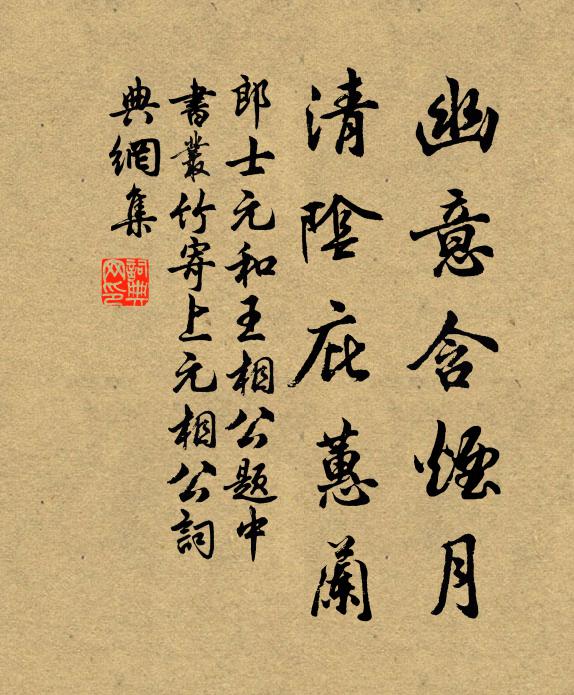 幽意含煙月
清陰庇蕙蘭
郎士元和王相公題中
書叢竹寄上元相公詞
典網集
詞典
网印